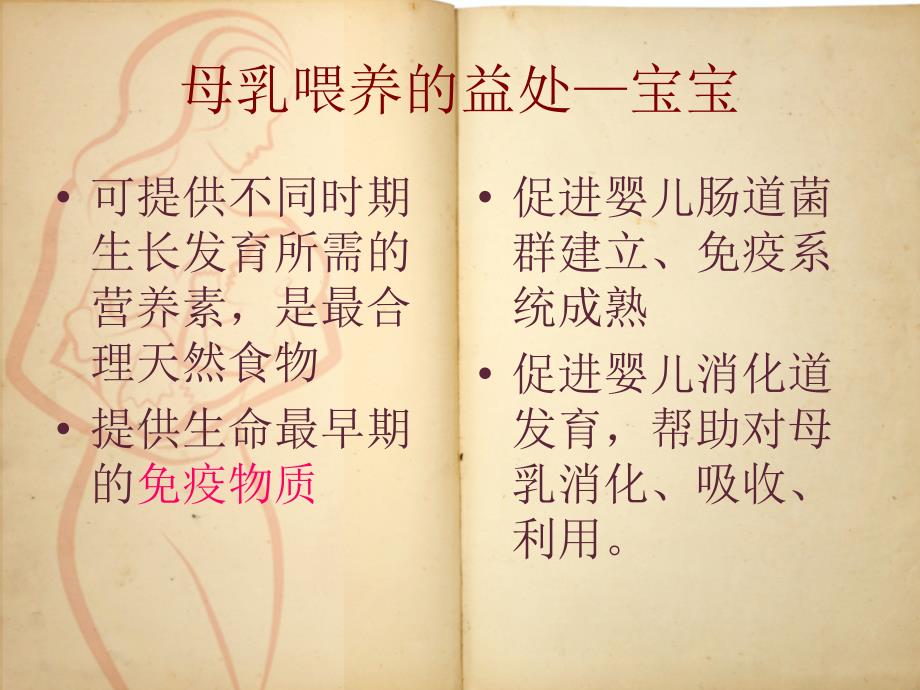 母乳喂养的益处—宝宝
• 可提供不同时期
生长发育所需的
营养素，是最合
理天然食物
• 提供生命最早期
的免疫物质
• 促进婴儿肠道菌
群建立、免疫系
统成熟
• 促进婴儿消化道
发育，帮助对母
乳消化、吸收、
利用。